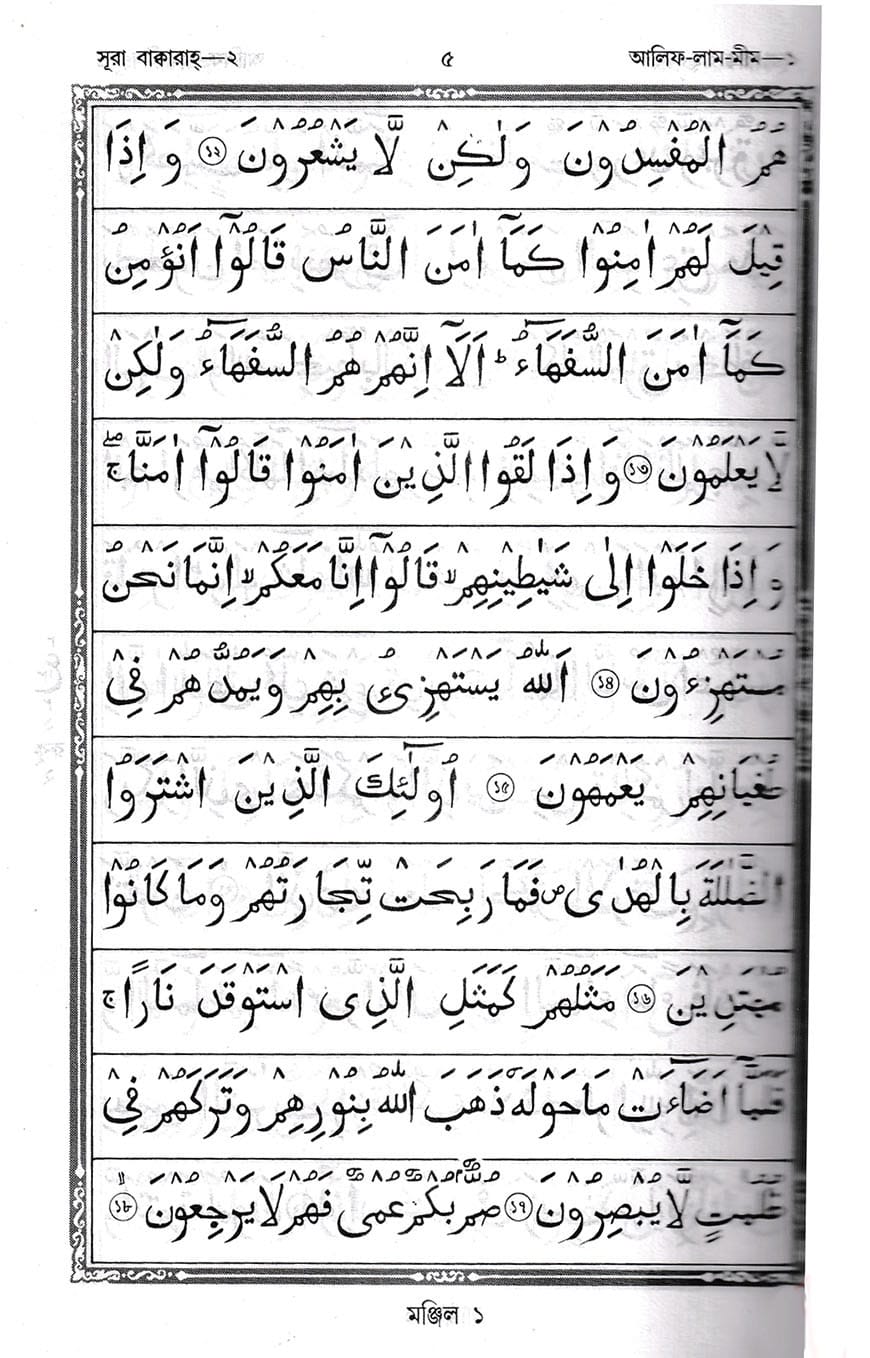 সূরা বাক্বারাহ্—২ ৫ আলিফ-লাম-মীম—১
هُمُ الْمُفْسِدُوْنَ وَلٰكِنْ لَّا يَشْعُرُوْنَ ⟨১২⟩ وَ اِذَا
قِيْلَ لَهُمْ اٰمِنُوْا كَمَآ اٰمَنَ النَّاسُ قَالُوْٓا اَنُؤْمِنُ
كَمَآ اٰمَنَ السُّفَهَآءُ ؕ اَلَآ اِنَّهُمْ هُمُ السُّفَهَآءُ وَلٰكِنْ
لَّا يَعْلَمُوْنَ ⟨১৩⟩ وَ اِذَا لَقُوا الَّذِيْنَ اٰمَنُوْا قَالُوْٓا اٰمَنَّا ۖۚ
وَ اِذَا خَلَوْا اِلٰى شَيٰطِيْنِهِمْ ۙ قَالُوْٓا اِنَّا مَعَكُمْ ۙ اِنَّمَا نَحْنُ
مُسْتَهْزِءُوْنَ ⟨১৪⟩ اَللّٰهُ يَسْتَهْزِئُ بِهِمْ وَيَمُدُّهُمْ فِيْ
طُغْيَانِهِمْ يَعْمَهُوْنَ ⟨১৫⟩ اُولٰٓئِكَ الَّذِيْنَ اشْتَرَوُا
الضَّلٰلَةَ بِالْهُدٰى ۪ فَمَا رَبِحَتْ تِّجَارَتُهُمْ وَمَا كَانُوْا
مُهْتَدِيْنَ ⟨১৬⟩ مَثَلُهُمْ كَمَثَلِ الَّذِى اسْتَوْقَدَ نَارًا ۚ
فَلَمَّآ اَضَآءَتْ مَاحَوْلَهٗ ذَهَبَ اللّٰهُ بِنُوْرِهِمْ وَتَرَكَهُمْ فِيْ
ظُلُمٰتٍ لَّا يُبْصِرُوْنَ ⟨১৭⟩ صُمٌّۢ بُكْمٌ عُمْىٌ فَهُمْ لَا يَرْجِعُوْنَ ۙ ⟨১৮⟩
মঞ্জিল ১